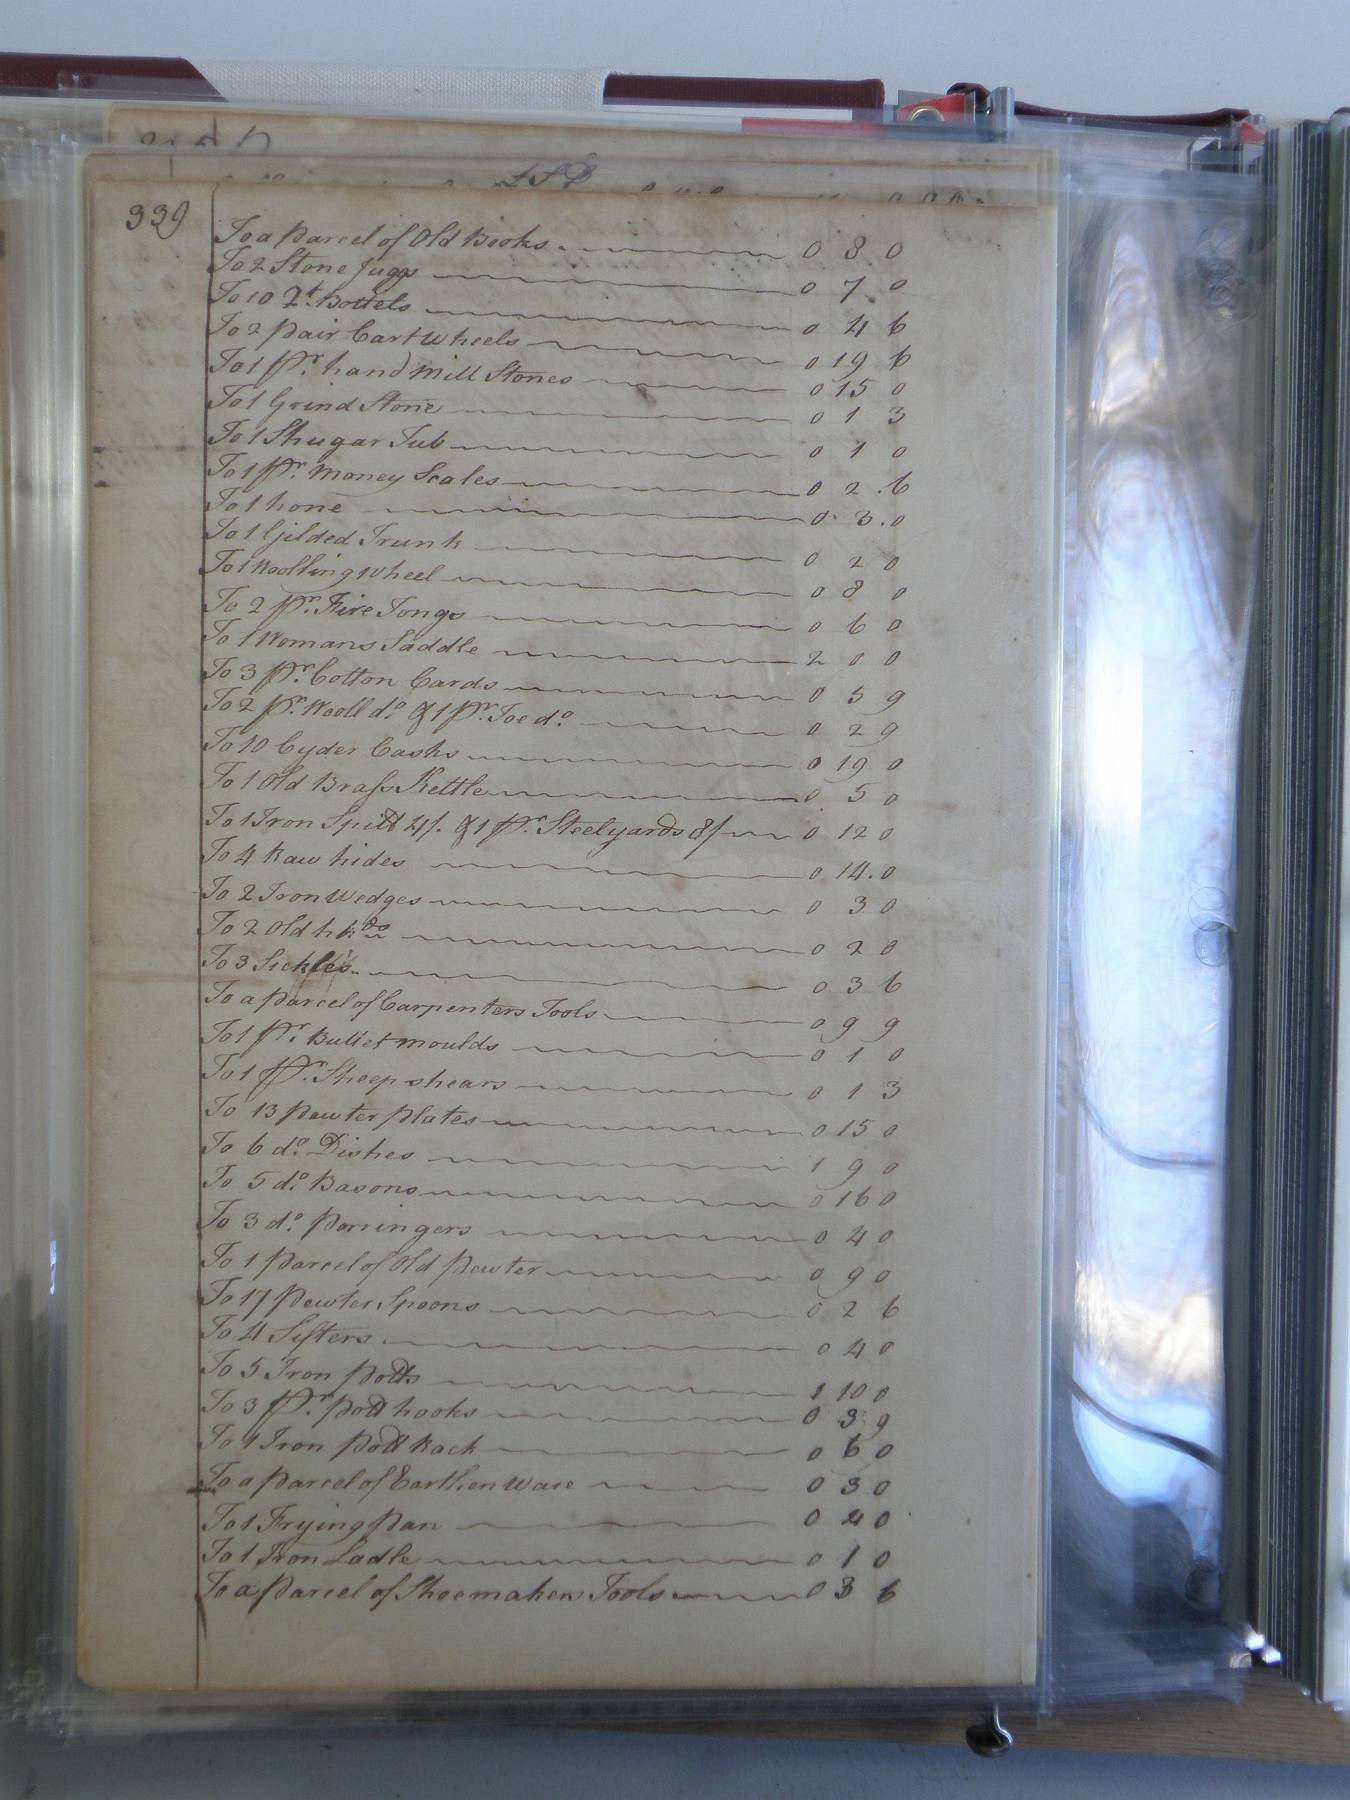 £ S D
339
To a Parcel of Old Books 0 8 0
To 2 Stone Juggs 0 7 0
To 10 Qt. Bottels 0 4 6
To 2 pair Cart Wheels 0 19 6
To 1 Pr. hand Mill Stones 0 15 0
To 1 Grind Stone 0 1 3
To 1 Shugar Tub 0 1 0
To 1 Pr. Money Scales 0 2 6
To 1 hone 0 3 0
To 1 Gilded Trunk 0 2 0
To 1 Woolling wheel 0 8 0
To 2 Pr. Fire Tongs 0 6 0
To 1 Womans Saddle 2 0 0
To 3 Pr. Cotton Cards 0 5 9
To 2 Pr. Wooll do. & 1 Pr. Toe do. 0 2 9
To 10 Cyder Casks 0 19 0
To 1 Old Brass Kettle 0 5 0
To 1 Iron Spitt 4/. & 1 Pr. Steelyards 8/ 0 12 0
To 4 Raw hides 0 14 0
To 2 Iron Wedges 0 3 0
To 2 Old 0 2 0
To 3 Sickles 0 3 6
To a parcel of Carpenters Tools 0 9 9
To 1 Pr. Bullet moulds 0 1 0
To 1 Pr. Sheep shears 0 1 3
To 13 Pewter plates 0 15 0
To 6 do. Dishes 1 9 0
To 5 do. Basons 0 16 0
To 3 do. Porringers 0 4 0
To 1 Parcel of Old Pewter 0 9 0
To 17 Pewter Spoons 0 2 6
To 4 Sifters 0 4 0
To 5 Iron Potts 1 10 0
To 3 Pr. Pott hooks 0 3 9
To 1 Iron Pott Rack 0 6 0
To a Parcel of Earthen Ware 0 3 0
To 1 Frying Pan 0 4 0
To 1 Iron Ladle 0 1 0
To a Parcel of Shoemakers Tools 0 3 6